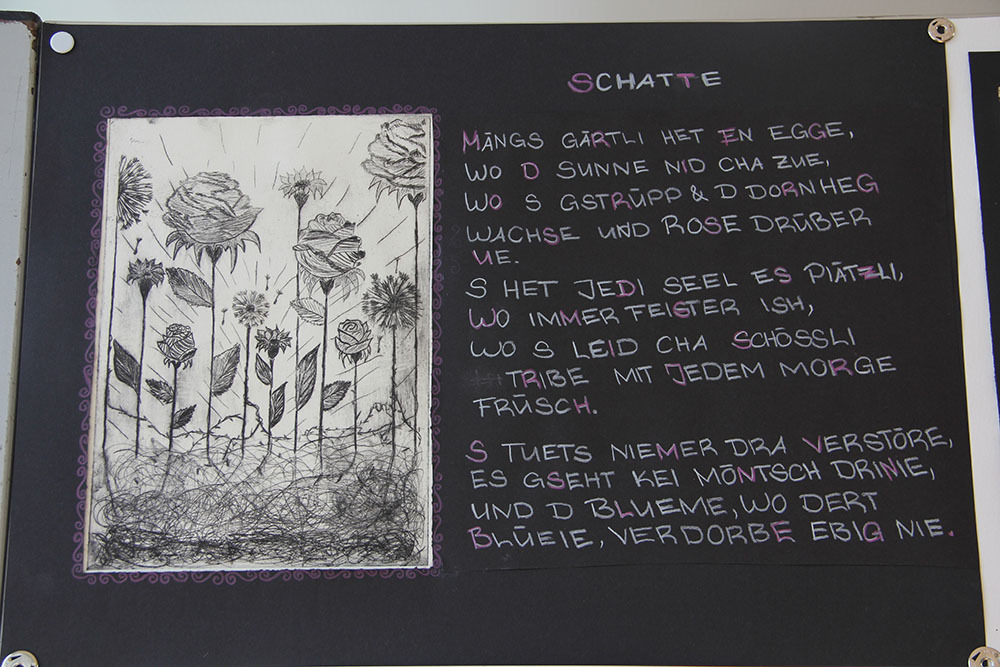 SCHATTE
MÄNGS GÄRTLI HET EN EGGE,
WO D SUNNE NID CHA ZUE,
WO S GSTRÜPP & D DORNHEG
WACHSE UND ROSE DRÜBER
UE.
S HET JEDI SEEL ES PLÄTZLI,
WO IMMER FEISTER ISH,
WO S LEID CHA SCHÖSSLI
TRIBE MIT JEDEM MORGE
FRÜSCH.
S TUETS NIEMER DRA VERSTÖRE,
ES GSEHT KEI MÖNTSCH DRINIE,
UND D BLUEME, WO DERT
BLÜEIE, VERDORBE EBIG NIE.